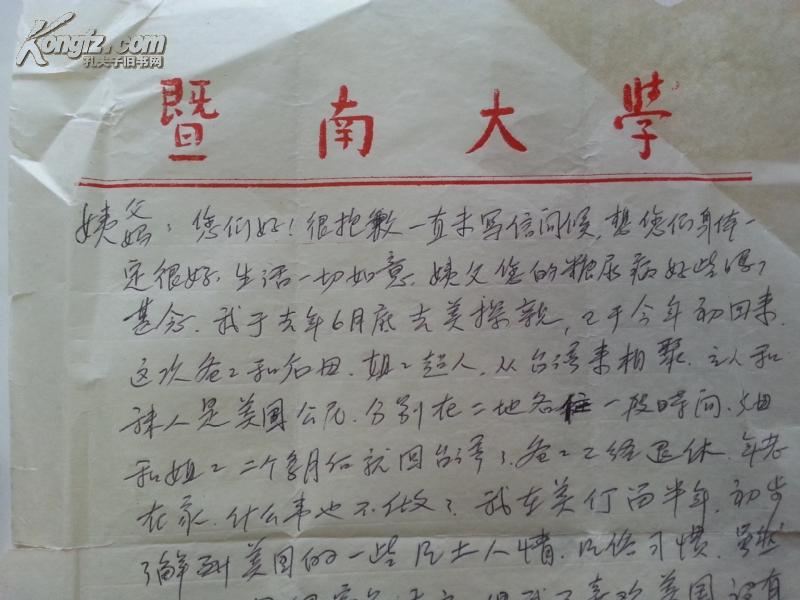 Kongfz.com
孔夫子旧书网
暨南大学
姨父妈：您们好！很抱歉一直未写信问候，想您们身体一
定很好，生活一切如意，姨父您的糖尿病好些吗？
甚念。我于去年6月底去美探亲，已于今年初回来。
这次爸爸和后母、姐姐超人，从台湾来相聚，立人和
人是美国公民，分别在二地各住一段时间，
和姐姐二个多月后就回台湾了，爸爸已经退休，年老
在家，什么事也不做了。我在美仃留半年，初步
了解到美国的一些风土人情，风俗习惯，虽然
美国